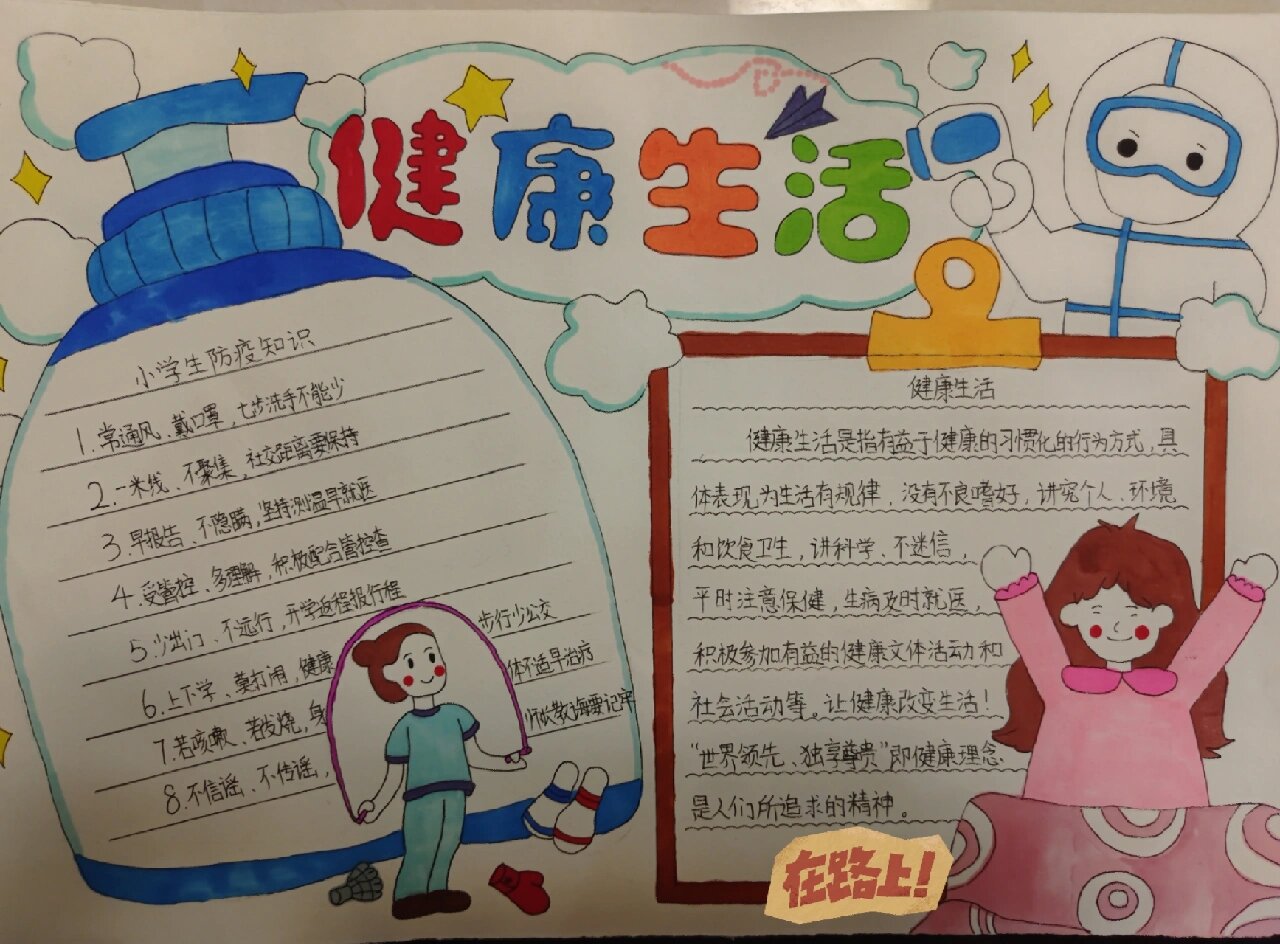 健康生活
小学生防疫知识
1.常通风、戴口罩，七步洗手不能少
2.一米线、不聚集，社交距离要保持
3.早报告、不隐瞒，坚持测温早就医
4.受管控、多理解，积极配合管控查
5.少出门、不远行，开学返程报行程
6.上下学、莫打闹，健康步行少公交
7.若咳嗽、若发烧，身体不适早治疗
8.不信谣、不传谣，师长教诲要记牢
健康生活
健康生活是指有益于健康的习惯化的行为方式，具
体表现为生活有规律，没有不良嗜好，讲究个人、环境
和饮食卫生，讲科学、不迷信，
平时注意保健，生病及时就医，
积极参加有益的健康文体活动和
社会活动等。让健康改变生活！
“世界领先、独享尊贵”即健康理念
是人们所追求的精神。
在路上！